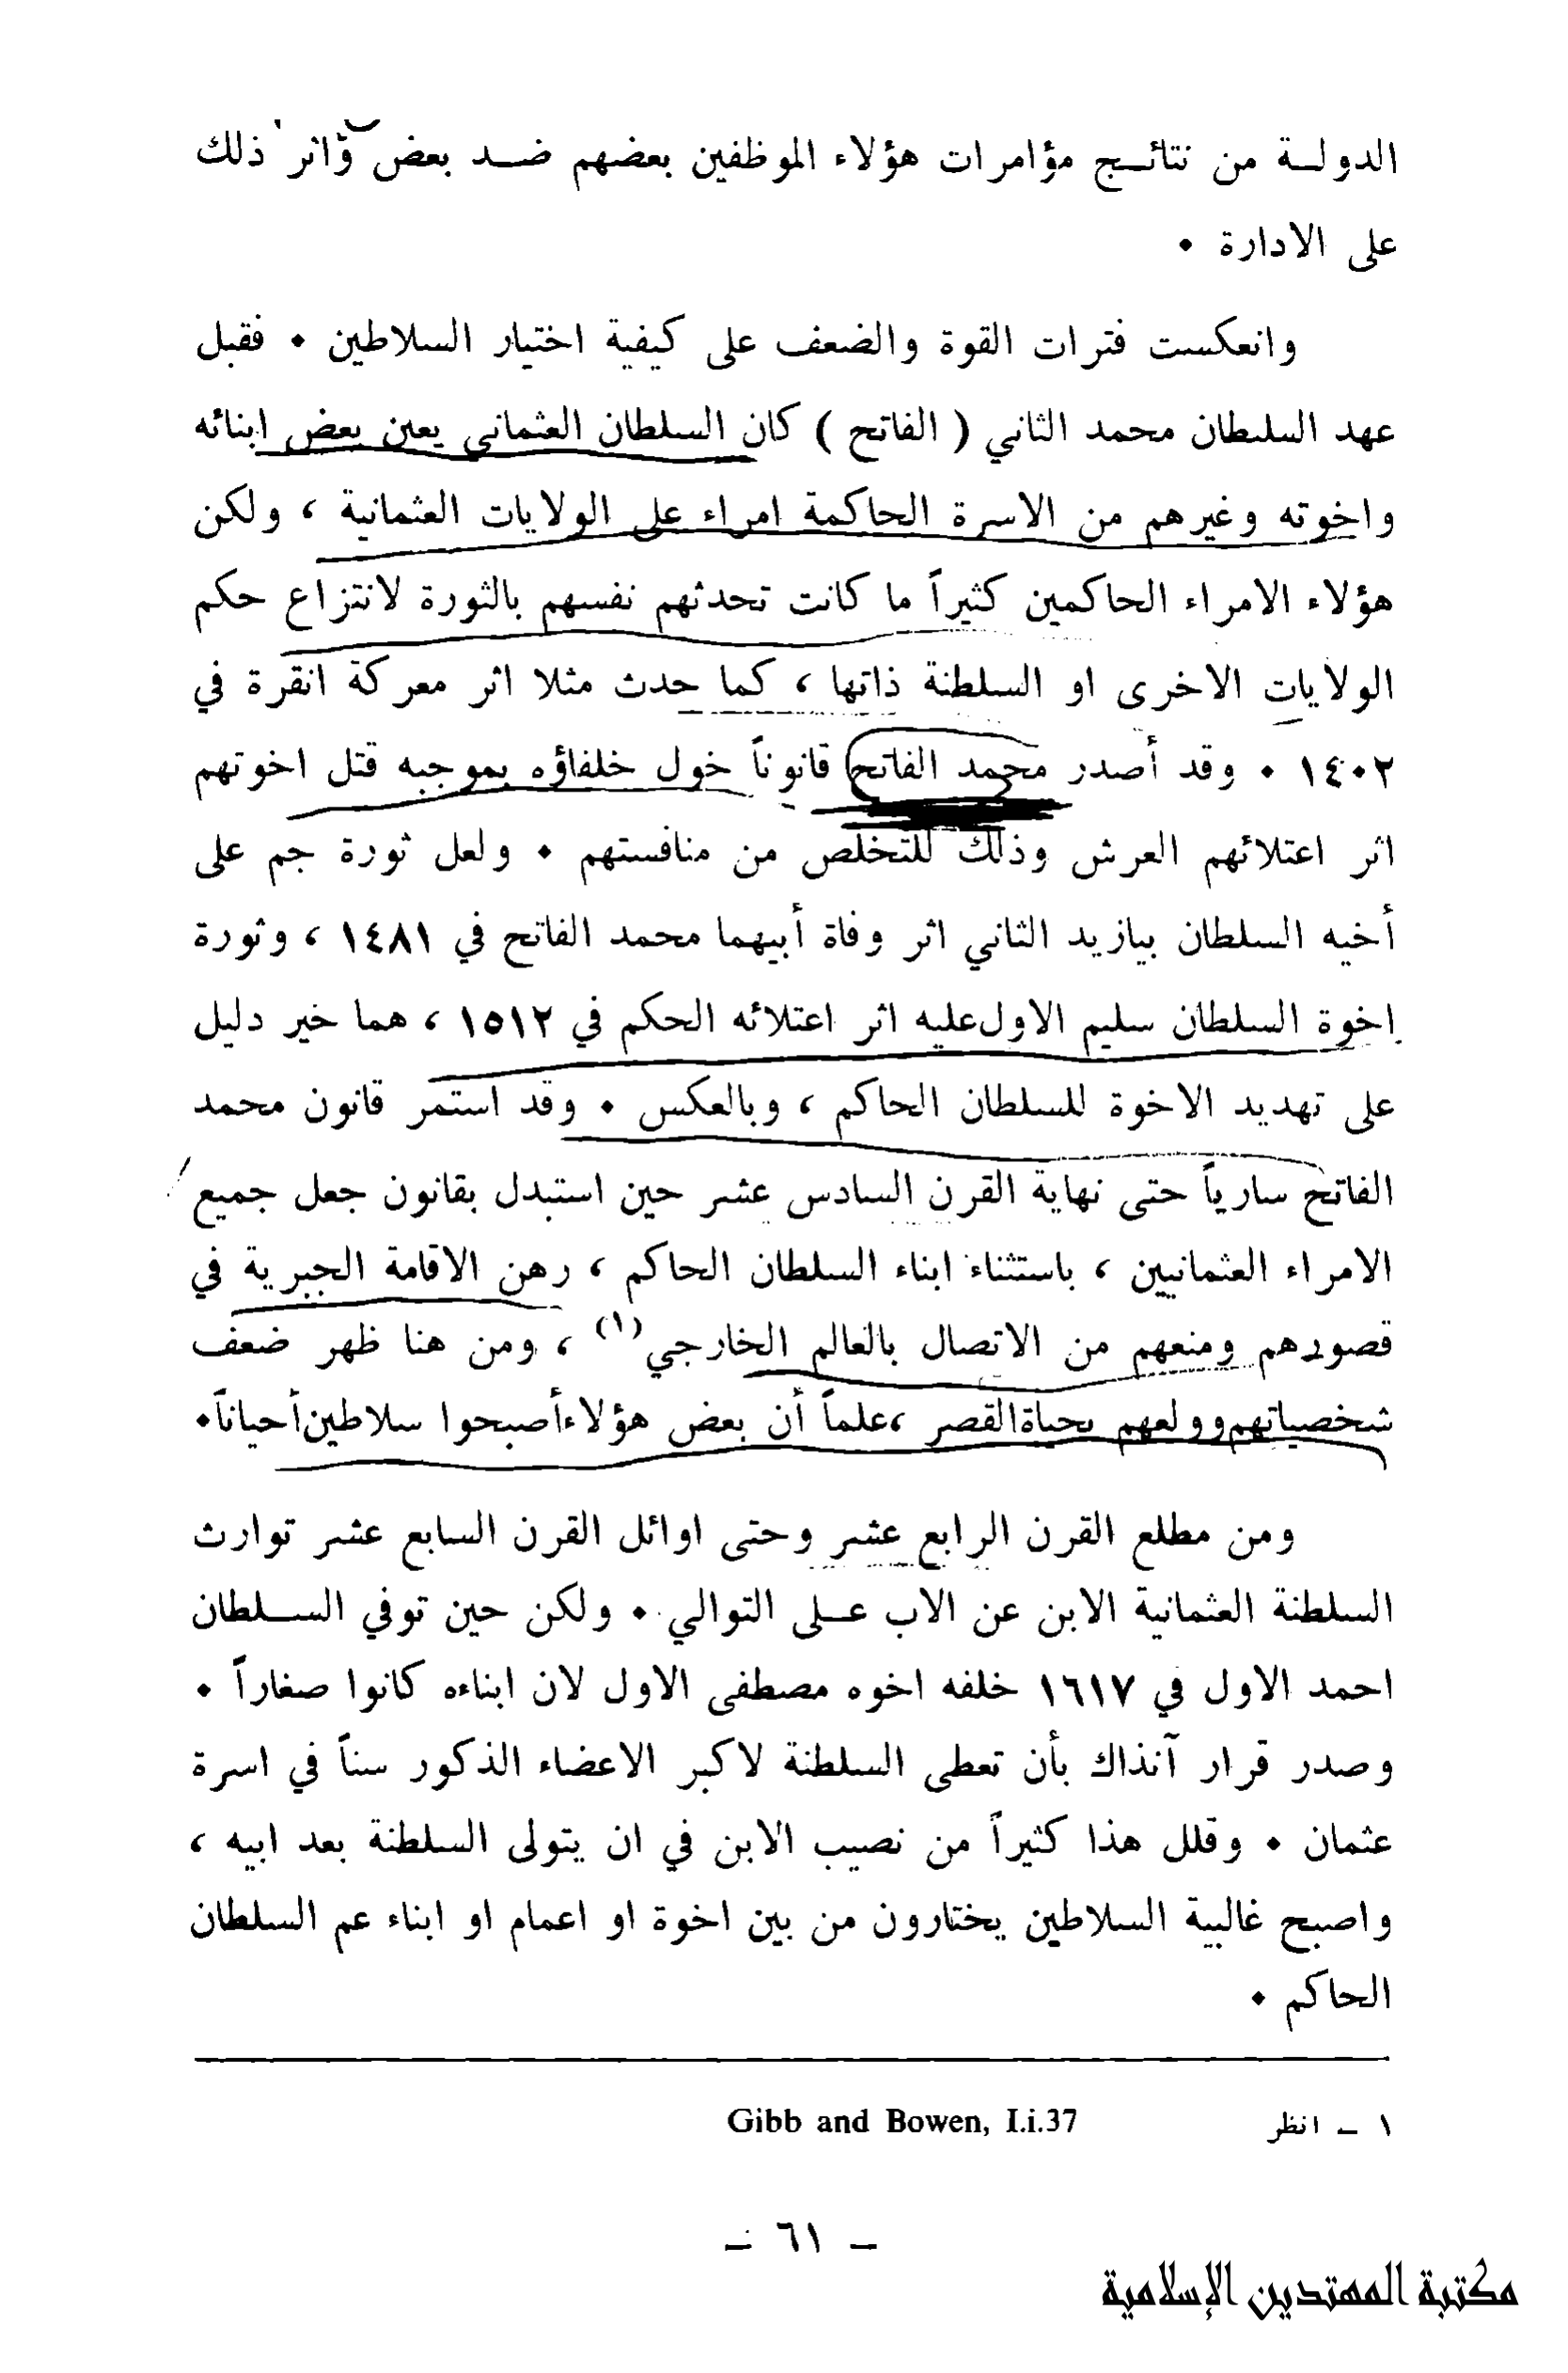 الدولـة من نتائـج مؤامرات هؤلاء الموظفين بعضهم ضـد بعض واثر ذلك
على الادارة ٠
وانعكست فترات القوة والضعف على كيفية اختيار السلاطين ٠ فقبل
عهد السلطان محمد الثاني ( الفاتح ) كان السلطان العثماني يعين بعض ابنائه
واخوته وغيرهم من الاسرة الحاكمة امراء على الولايات العثمانية ، ولكن
هؤلاء الامراء الحاكمين كثيراً ما كانت تحدثهم نفسهم بالثورة لانتزاع حكم
الولايات الاخرى او السلطنة ذاتها ، كما حدث مثلا اثر معركة انقرة في
١٤٠٢ ٠ وقد أصدر محمد الفاتح قانوناً خول خلفاؤه بموجبه قتل اخوتهم
اثر اعتلائهم العرش وذلك للتخلص من منافستهم ٠ ولعل ثورة جم على
أخيه السلطان بيازيد الثاني اثر وفاة أبيهما محمد الفاتح في ١٤٨١ ، وثورة
اخوة السلطان سليم الاول عليه اثر اعتلائه الحكم في ١٥١٢ ، هما خير دليل
على تهديد الاخوة للسلطان الحاكم ، وبالعكس ٠ وقد استمر قانون محمد
الفاتح سارياً حتى نهاية القرن السادس عشر حين استبدل بقانون جعل جميع
الامراء العثمانيين ، باستثناء ابناء السلطان الحاكم ، رهن الاقامة الجبرية في
قصورهم ومنعهم من الاتصال بالعالم الخارجي(١) ، ومن هنا ظهر ضعف
شخصياتهم وولعهم بحياة القصر ، علماً أن بعض هؤلاء أصبحوا سلاطين أحياناً ٠
ومن مطلع القرن الرابع عشر وحتى اوائل القرن السابع عشر توارث
السلطنة العثمانية الابن عن الاب عـلى التوالي ٠ ولكن حين توفي السـلطان
احمد الاول في ١٦١٧ خلفه اخوه مصطفى الاول لان ابناءه كانوا صغاراً ٠
وصدر قرار آنذاك بأن تعطى السلطنة لاكبر الاعضاء الذكور سناً في اسرة
عثمان ٠ وقلل هذا كثيراً من نصيب الابن في ان يتولى السلطنة بعد ابيه ،
واصبح غالبية السلاطين يختارون من بين اخوة او اعمام او ابناء عم السلطان
الحاكم ٠
١ ـ انظر Gibb and Bowen, I.i.37
ـ ٦١ ـ
مكتبة المهتدين الإسلامية